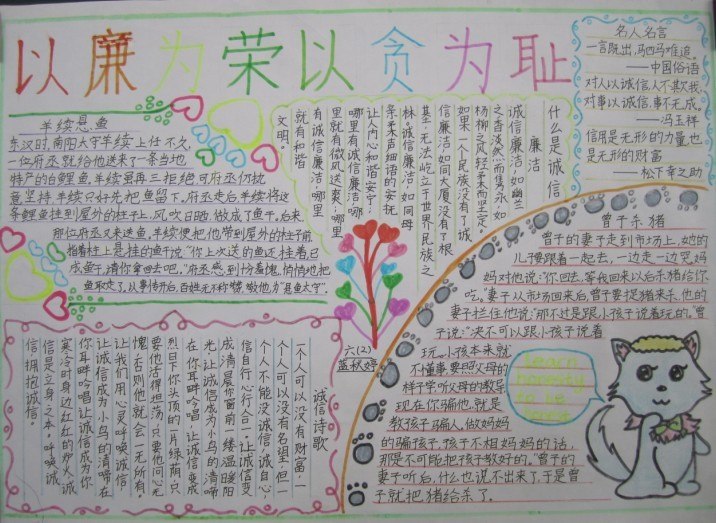 以廉为荣以贪为耻
羊续悬鱼
东汉时,南阳太守羊续上任不久,
一位府丞就给他送来了一条当地
特产的白鲤鱼,羊续再三拒绝,可府丞仍执
意坚持,羊续只好先把鱼留下。府丞走后,羊续将这
条鲤鱼挂到屋外的柱子上,风吹日晒,做成了鱼干。后来,
那位府丞又来送鱼,羊续便把他带到屋外的柱子前,
指着柱上悬挂的鱼干说:“你上次送的鱼还挂着,已
成鱼干,请你拿回去吧。”府丞感到十分羞愧,悄悄地把
鱼取走了,从事传开后,百姓无不称赞,敬他为“悬鱼太守”。
什么是诚信
廉洁
诚信廉洁,如幽兰
之香,淡然而隽永;如
杨柳之风,轻柔而坚定。
如果一个民族没有了诚
信廉洁,如同大厦没有了根
基,无法屹立于世界民族之
林。诚信廉洁,如同母
亲柔声细语的安抚,
让人内心和谐安宁;
哪里有诚信廉洁,哪
里就有微风送爽;哪里
有诚信廉洁,哪里
就有和谐
文明。
名人名言
一言既出,驷马难追。
——中国俗语
对人以诚信,人不欺我,
对事以诚信,事不成。
——冯玉祥
信用是无形的力量,也
是无形的财富
——松下幸之助
曾子杀猪
曾子的妻子走到市场上,她的
儿子跟着一起去,一边走一边哭。妈
妈对他说:“你回去,等我回来以后杀猪给你
吃。”妻子从市场回来后,曾子要捉猪来杀,他的
妻子拦住他说:“那不过是跟小孩子说着玩的。”曾
子说:“决不可以跟小孩子说着
玩。小孩本来就
不懂事,要照父母的
样子学,听父母的教导。
现在你骗他,就是
教孩子骗人,做妈妈
的骗孩子,孩子不相妈妈的话,
那是不可能把孩子教好的。”曾子的
妻子听后,什么也说不出来了,于是曾
子就把猪给杀了。
六(2)
诚信诗歌
一个人可以没有财富,一
个人可以没有名望,但一
个人不能没诚信,诚自心,
信自行,心行合一。让诚信变
成清晨你窗前一缕温暖阳
光,让诚信成为小鸟的清啼
在你耳畔吟唱,让诚信变成
烈日下你头顶的一片绿荫,只
要他活得坦荡,只要他问心无
愧,否则他就会一无所有。
让我们用心灵呼唤诚信,
让诚信成为小鸟的清啼在
你耳畔吟唱,让诚信成为你
寒冷时身边红红的炉火,诚
信是立身之本,呼唤诚
信,拥抱诚信。
Learn
honesty
to be